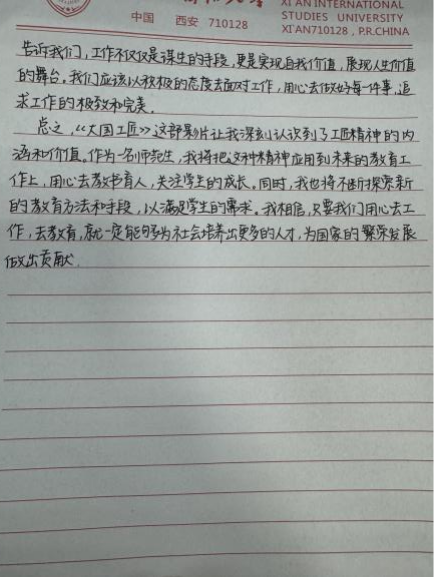 XI'AN INTERNATIONAL
中国 西安 710128 STUDIES UNIVERSITY
XI'AN710128, P.R.CHINA
告诉我们，工作不仅仅是谋生的手段，更是实现自我价值，展现人生价值
的舞台。我们应该以积极的态度去面对工作，用心去做好每一件事，追
求工作的极致和完美。
总之，《大国工匠》这部影片让我深刻认识到了工匠精神的内
涵和价值。作为一名师范生，我将把这种精神应用到未来的教育工
作上，用心去教书育人，关注学生的成长。同时，我也将不断探索新
的教育方法和手段，以满足学生的需求。我相信，只要我们用心去工
作，去教育，就一定能够为社会培养出更多的人才，为国家的繁荣发展
做出贡献.